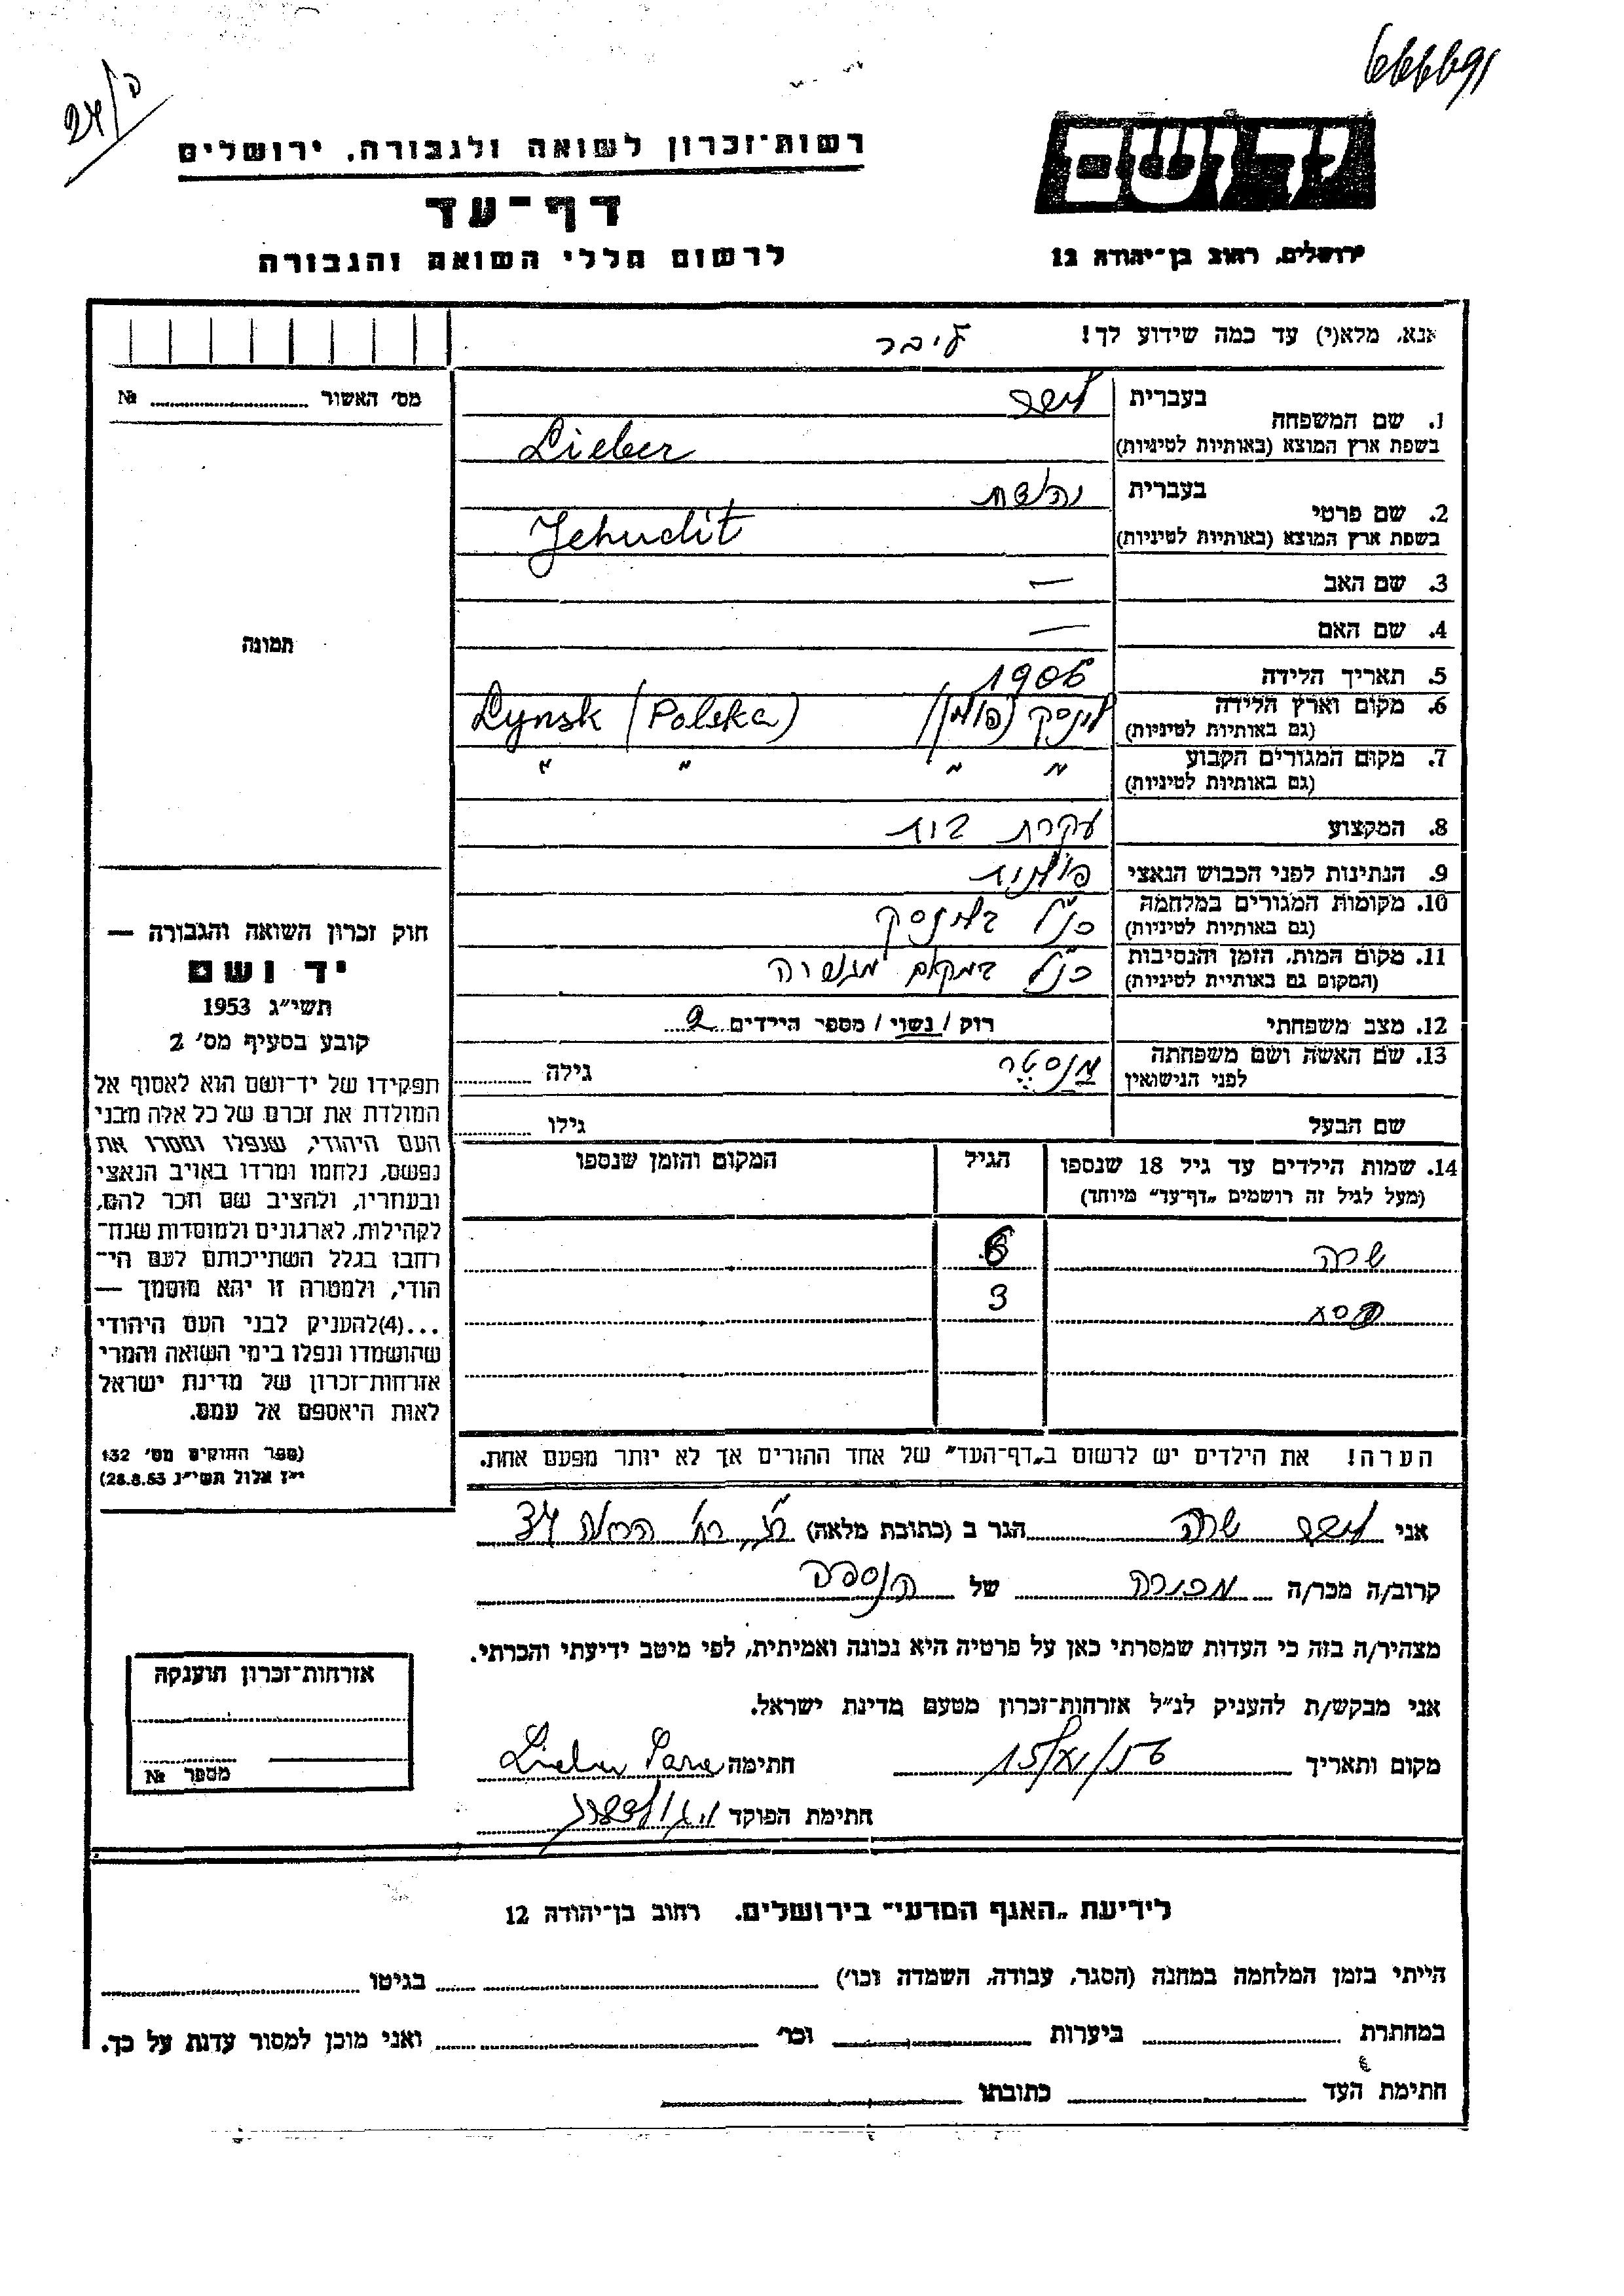 666691
24/ה
יד ושם
ירושלים, רחוב בן־יהודה 12
רשות־זכרון לשואה ולגבורה, ירושלים
דף־עד
לרשום חללי השואה והגבורה
אנא, מלא(י) עד כמה שידוע לך!
ליבר
מס' האשור № 
תמונה
חוק זכרון השואה והגבורה —
יד ושם
תשי״ג 1953
קובע בסעיף מס' 2
תפקידו של יד־ושם הוא לאסוף אל
המולדת את זכרם של כל אלה מבני
העם היהודי, שנפלו ומסרו את
נפשם, נלחמו ומרדו באויב הנאצי
ובעוזריו, ולהציב שם וזכר להם,
לקהילות, לארגונים ולמוסדות שנח־
רבו בגלל השתייכותם לעם הי־
הודי, ולמטרה זו יהא מוסמך —
...(4)להעניק לבני העם היהודי
שהושמדו ונפלו בימי השואה והמרי
אזרחות־זכרון של מדינת ישראל
לאות היאספם אל עמם.
(ספר החוקים מס' 132
י״ז אלול תשי״ג 28.8.53)
1. שם המשפחה
בעברית ליבר
בשפת ארץ המוצא (באותיות לטיניות) Lieber
2. שם פרטי
בעברית יהודית
בשפת ארץ המוצא (באותיות לטיניות) Jehudit
3. שם האב —
4. שם האם —
5. תאריך הלידה 1906
6. מקום וארץ הלידה לינסק (פולין) Lynsk (Polska)
(גם באותיות לטיניות)
7. מקום המגורים הקבוע " " " "
(גם באותיות לטיניות)
8. המקצוע עקרת בית
9. הנתינות לפני הכבוש הנאצי פולנית
10. מקומות המגורים במלחמה כנ״ל בלינסק
(גם באותיות לטיניות)
11. מקום המות, הזמן והנסיבות כנ״ל במקום מגוריה
(המקום גם באותיות לטיניות)
12. מצב משפחתי רוק / נשוי / מספר הילדים 2
13. שם האשה ושם משפחתה גילה
לפני הנישואין
שם הבעל גילו
14. שמות הילדים עד גיל 18 שנספו הגיל המקום והזמן שנספו
(מעל לגיל זה רושמים „דף־עד״ מיוחד)
שרה 6
3
הערה! את הילדים יש לרשום ב„דף־העד״ של אחד ההורים אך לא יותר מפעם אחת.
אני ליבר שרה הגר ב (כתובת מלאה)
קרוב/ה מכר/ה מכורה של הנספה
מצהיר/ה בזה כי העדות שמסרתי כאן על פרטיה היא נכונה ואמיתית, לפי מיטב ידיעתי והכרתי.
אני מבקש/ת להעניק לנ״ל אזרחות־זכרון מטעם מדינת ישראל.
מקום ותאריך 15/VI/56 חתימה Lieber Sara
חתימת הפוקד
אזרחות־זכרון הוענקה
מספר №
לידיעת „האגף המדעי״ בירושלים. רחוב בן־יהודה 12
הייתי בזמן המלחמה במחנה (הסגר, עבודה, השמדה וכו') בגיטו
במחתרת ביערות וכו' ואני מוכן למסור עדות על כך.
חתימת העד כתובתו